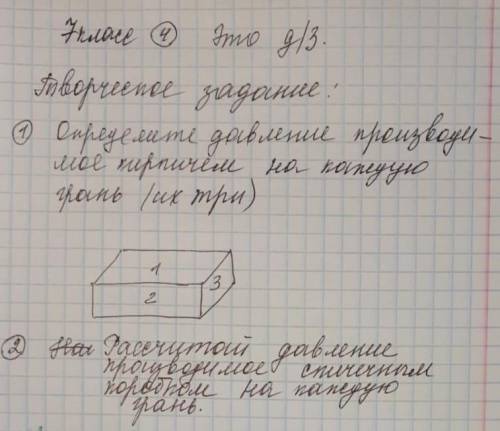 7класс (4) Это д/З.
Творческое задание:
① Определите давление производи-
мое кирпичем на каждую
грань (их три)
1
2
3
② Рассчитай давление
производимое спичечным
коробком на каждую
грань.